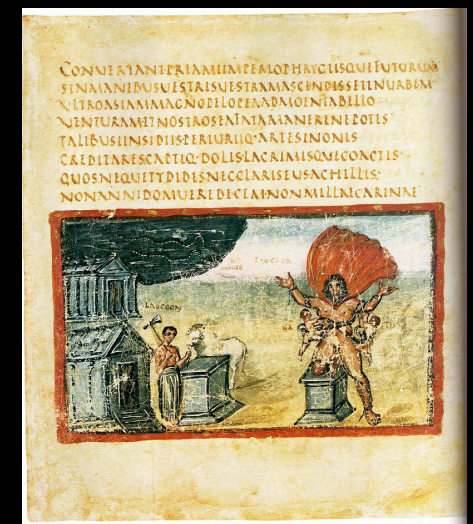 CONVERTANTPRIAMIIMPERIOPHRYGIBUSQUEFUTURUM
SINMANIBUSVESTRISVESTRAMASCENDISSETINURBEM
VLTROASIAMMAGNOPELOPEAADMOENIABELLO
VENTURAMETNOSTROSEAFATAMANERENEPOTES
TALIBUSINSIDIISPERIURIQ·ARTESINONIS
CREDITARESCAPTIQ·DOLISLACRIMISQUECOACTIS
QUOSNEQUETYDIDESNECCLARISEUSACHILLIS
NONANNIDOMUEREDECEMNONMILLECARINAE
LAOCOON
LAOCOON